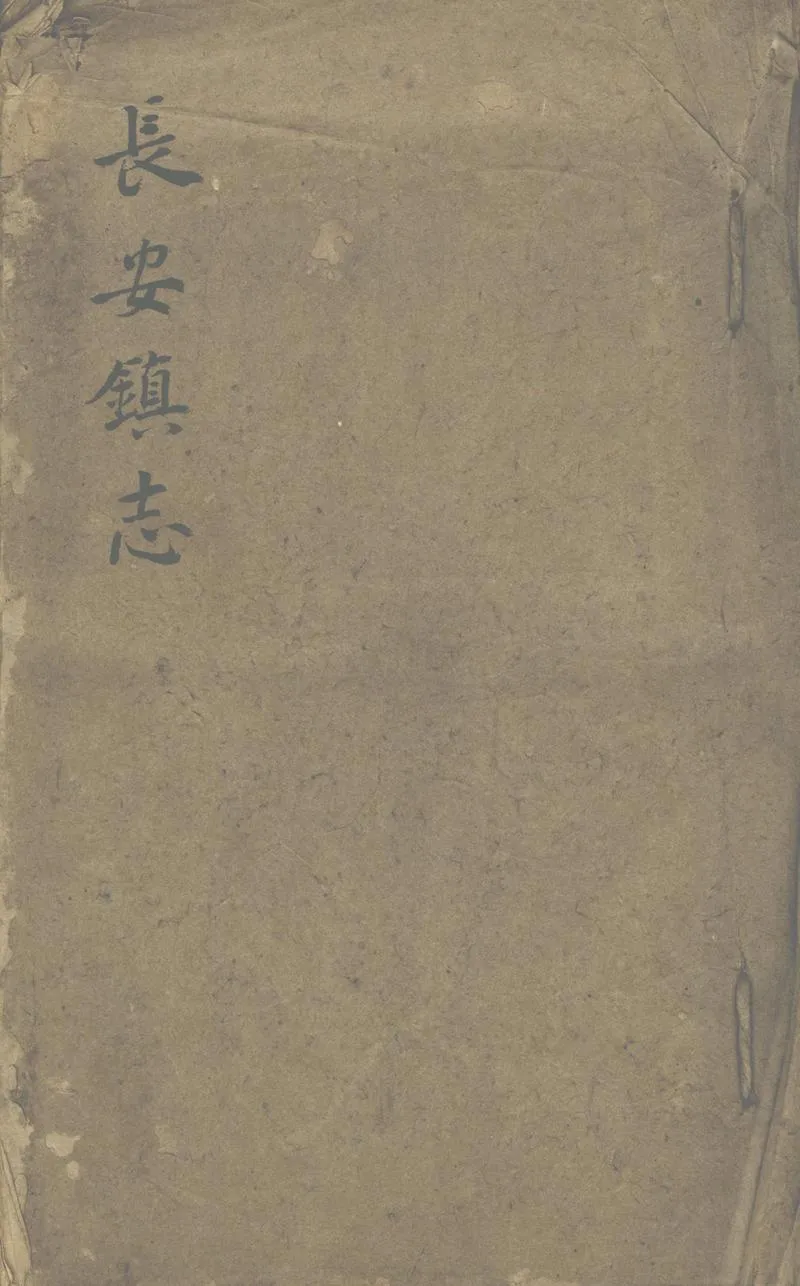 長安鎮志